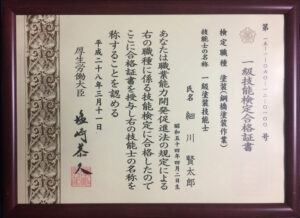 一級技能検定合格証書
検定職種 塗装(鋼橋塗装作業)
技能士の名称 一級塗装技能士
氏名 細川 賢太郎
昭和五十四年四月二日生
あなたは職業能力開発促進法の規定による
右の職種に係る技能検定に合格したので
ここに合格証書を授与し右の技能士の名称を
称することを認める
平成二十八年三月十一日
厚生労働大臣 塩崎恭久